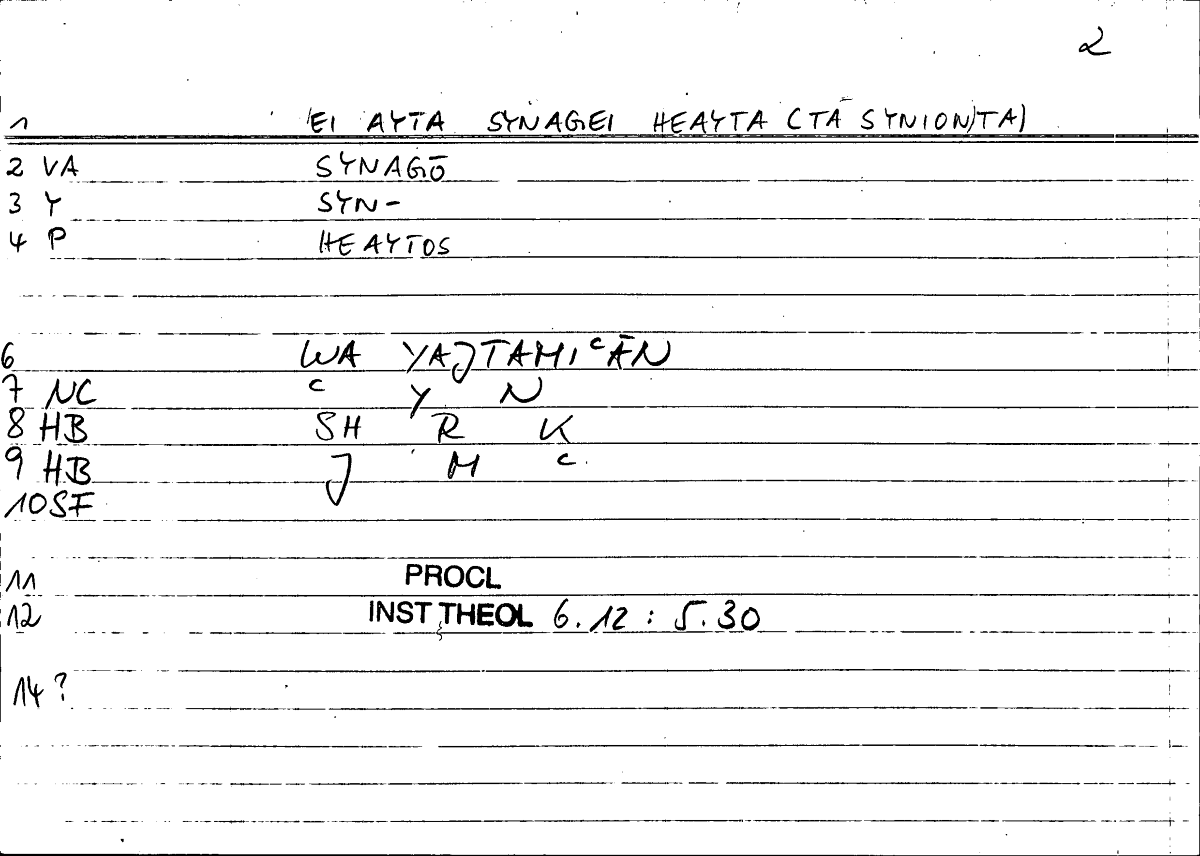 2
1 EI AYTA SYNAGEI HEAYTA (TĀ SYNION)TA)
2 VA SYNAGŌ
3 Y SYN-
4 P HEAYTOS
6 WA YAJTAMIᶜĀN
7 NC ᶜ Y N
8 HB SH R K
9 HB J M ᶜ
10 SF
11 PROCL
12 INST THEOL 6.12 : 5.30
14 ?